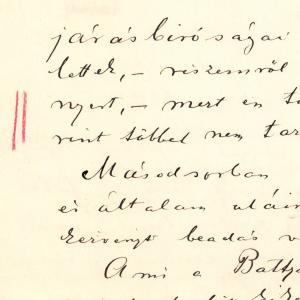 járásbiróságai
lettek, – részemről
nyert, – mert én
rint többel nem tar
Másodsorban
és általam aláir
beadás v
Ami a Batty